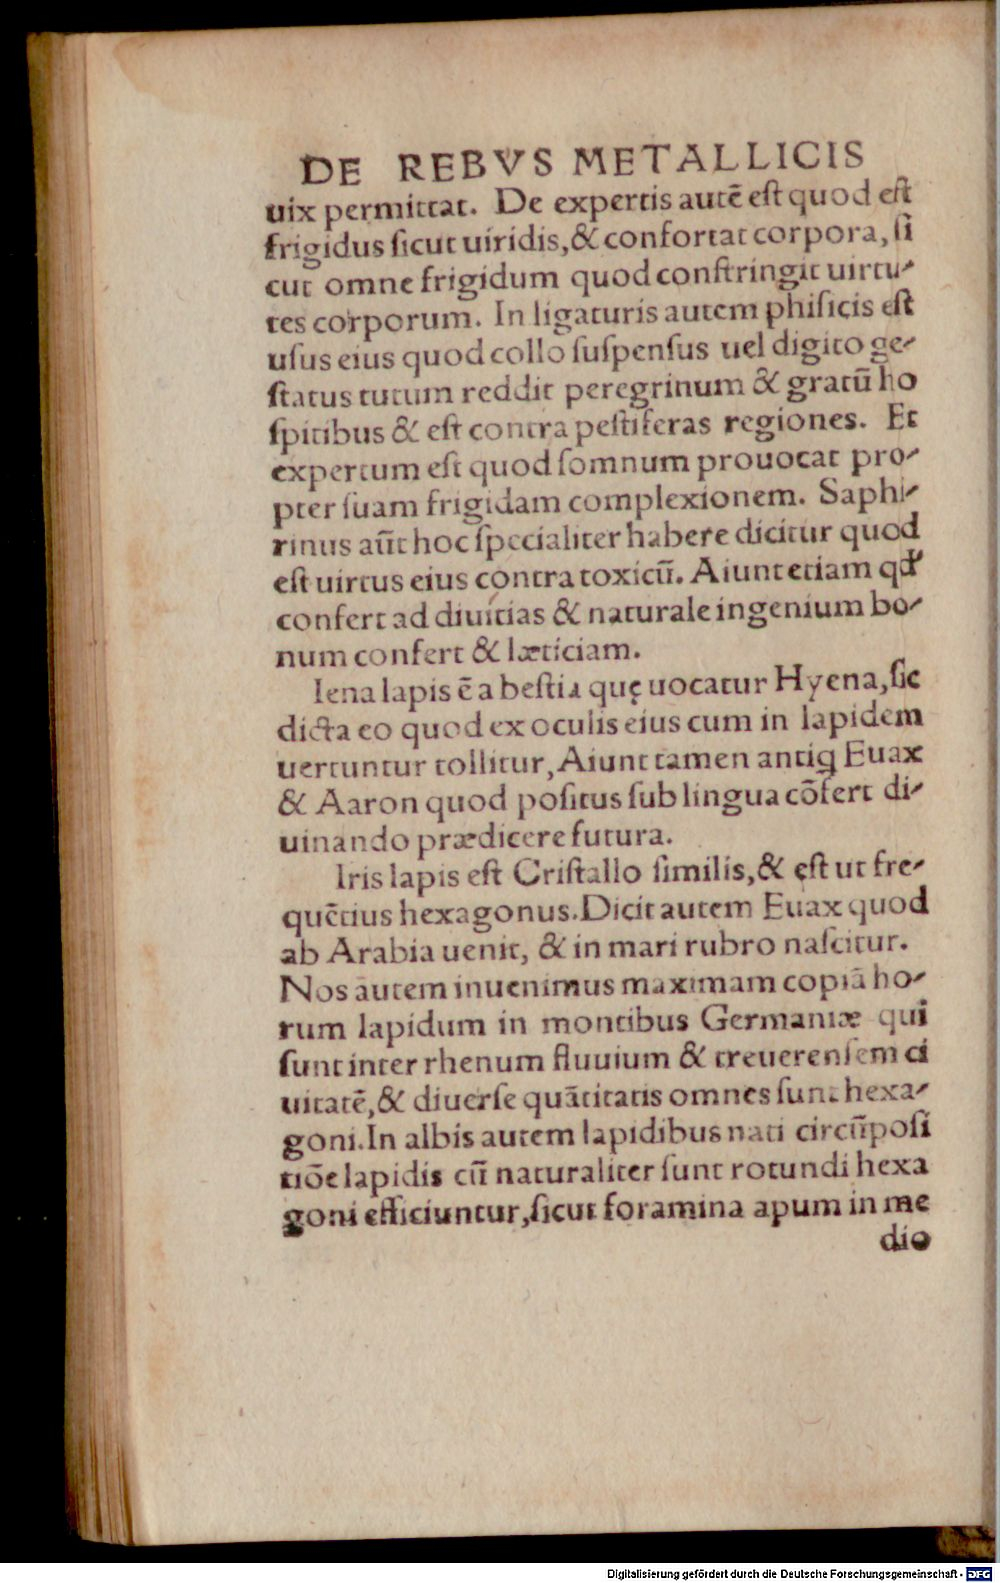 DE REBVS METALLICIS
uix permittat. De expertis autē eſt quod eſt
frigidus ſicut uiridis,& confortat corpora, ſi
cut omne frigidum quod conſtringit uirtu-
tes corporum. In ligaturis autem phiſicis eſt
uſus eius quod collo ſuſpenſus uel digito ge-
ſtatus tutum reddit peregrinum & gratū ho
ſpitibus & eſt contra peſtiferas regiones. Et
expertum eſt quod ſomnum prouocat pro-
pter ſuam frigidam complexionem. Saphi-
rinus aūt hoc ſpecialiter habere dicitur quod
eſt uirtus eius contra toxicū. Aiunt etiam qđ
confert ad diuitias & naturale ingenium bo-
num confert & læticiam.
Iena lapis ē a beſtia quę uocatur Hyena, ſic
dicta eo quod ex oculis eius cum in lapidem
uertuntur tollitur, Aiunt tamen antiq Euax
& Aaron quod poſitus ſub lingua cōfert di-
uinando prædicere futura.
Iris lapis eſt Criſtallo ſimilis,& eſt ut fre-
quētius hexagonus. Dicit autem Euax quod
ab Arabia uenit, & in mari rubro naſcitur.
Nos autem inuenimus maximam copiā ho-
rum lapidum in montibus Germaniæ qui
ſunt inter rhenum fluuium & treuerenſem ci
uitatē,& diuerſe quātitatis omnes ſunt hexa-
goni. In albis autem lapidibus nati circūpoſi
tiōe lapidis cū naturaliter ſunt rotundi hexa
goni efficiuntur, ſicut foramina apum in me
dio
Digitalisierung gefördert durch die Deutsche Forschungsgemeinschaft - DFG